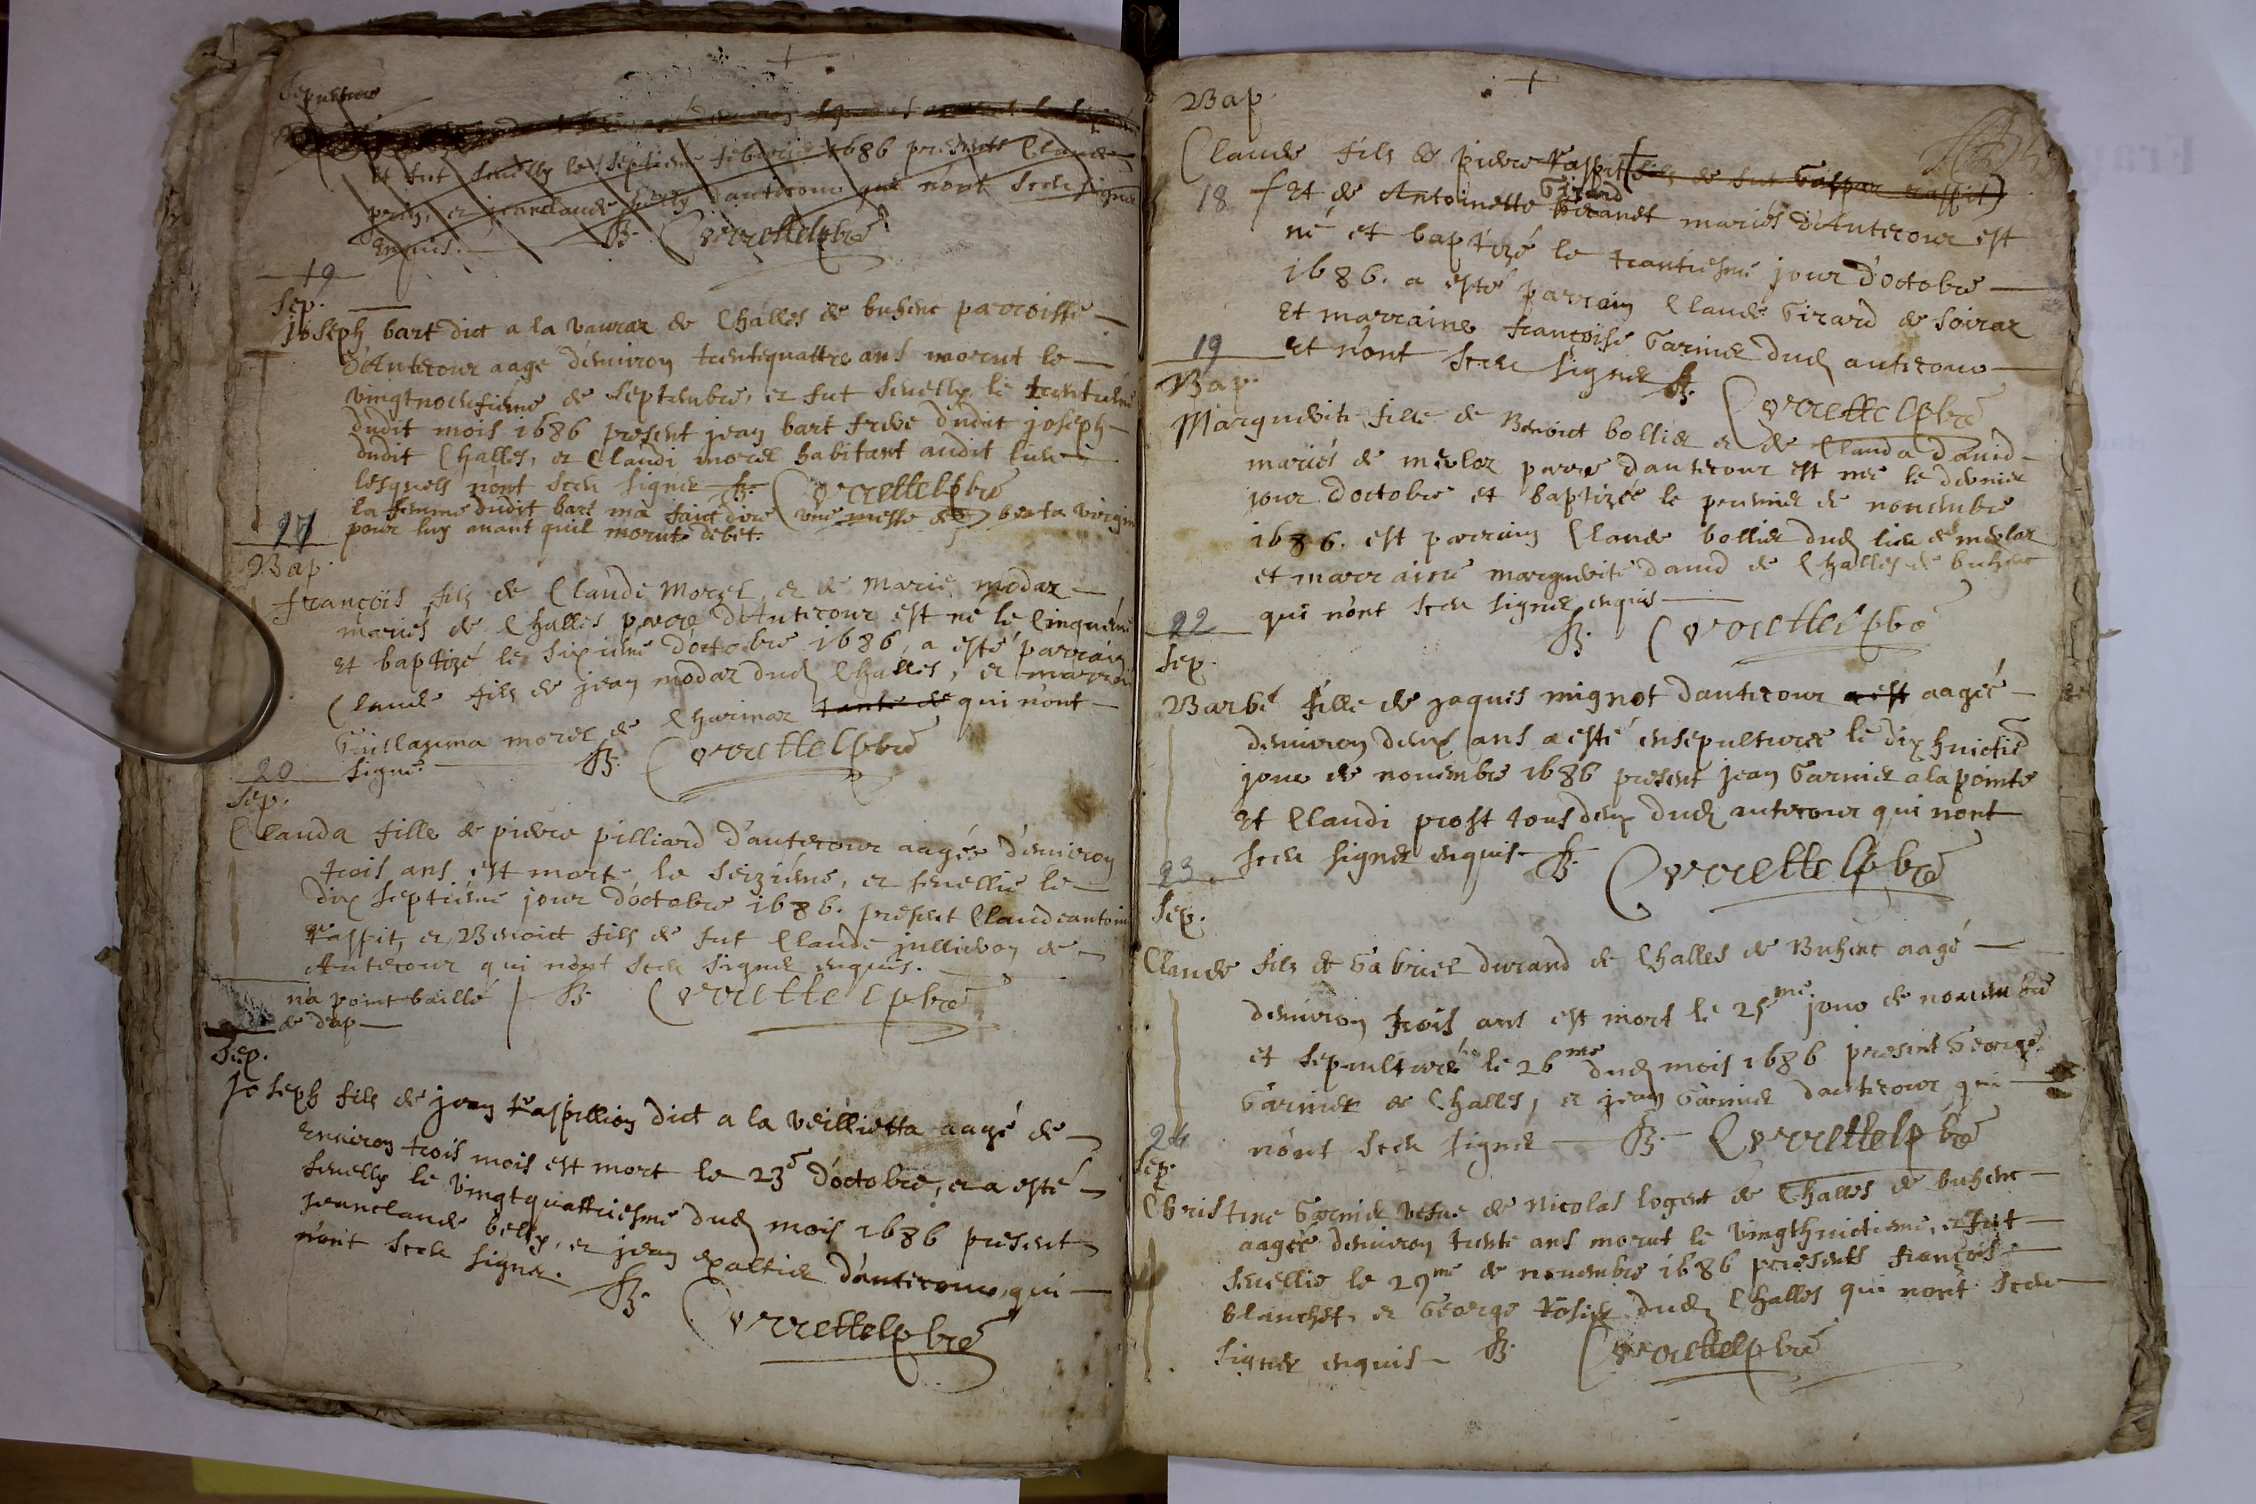 Sepulture
et fut sevelly le septieme 1686 presents Claude
prin, et jeanclaude d'antecour qui n'ont sceu signer
enquis.
19
Sep.
joseph bart dict a la vaurar de Challes de buhenc parroisse
d'Antecour aage d'environ trentequattre ans morut le
vingtnoeufiéme de septembre, et fut sevelly le trentiéme
dudit mois 1686 present jean bart frere dudit joseph
dudit Challes, et Claudi morel habitant audit lieu
lesquels n'ont sceu signer
la femme dudit bart m'a faict dire une messe de beata virgin
pour luy avant quil morut debet.
17
Bap.
françois fils de Claudi Morel et de Marie modar
mariés de Challes parre d'Antecour est né le cinquéme
et baptizé le sixiéme d'octobre 1686, a esté parrain
Claude fils de jean modar dud Challes, et marrai
Guillauma morel de Charinar tante de qui n'ont
signé.
20
Sep.
Clauda fille de pierre pilliard d'antecour aagée d'environ
trois ans est morte le seiziéme, et sevellie le
dix septiéme jour d'octobre 1686. present Claudeantoin
raspit, et Benoict fils de fut Claude jullieron de
Antecour qui n'ont sceu signer enquis.
n'a point baillé
de drap
Sep.
joseph fils de jean raspillion dict a la veillietta aagé de
environ trois mois est mort le 23e d'octobre, et a esté
sevelly le vingtquattriesme dud mois 1686 present
jeanclaude belly, et jean d'antecour, qui
n'ont sceu signer.
Bap.
Claude fils de pierre raspit (fils de fut Gaspar raspit)
18 Et de Antoinette Girard mariés d'Antecour est
né et baptizé le trantiesme jour d'octobre
1686. a esté parrain Claude Girard de soirar
et marraine françoise Garnier dud antecour
et n'ont sceu signer
19
Bap.
Marguerite fille de Benoict bollier et de Clauda david
mariés de merlar parre d'antecour est née le dernier
jour d'octobre et baptizée le premier de novembre
1686. est parrain Claude bollier dud lieu de merlar
et marraine marguerite david de Challes de buhenc
qui n'ont sceu signer enquis
22
Sep.
Barbe fille de jaques mignot d'antecour a est aagée
d'environ deux ans a esté ensepulturée le dix huictie
jour de novembre 1686 present jean Garnier a la pointe
et Claudi prost tous deux dud antecour qui n'ont
sceu signer enquis
23
Sep.
Claude fils de Gabriel durand de Challes de Buhenc aagé
d'environ trois ans est mort le 25me jour de novembre
et sepulturé le 26me dud mois 1686 present George
Garnier de Challes, et jean Garnier d'antecour, qui
n'ont sceu signer
24
Sep.
Christine Garnier vefve de Nicolas logent de Challes de buhenc
aagée d'environ trente ans morut le vingthuictieme, et fut
sevellie le 29me de novembre 1686 presents françois
blanchet, et George dud Challes qui n'ont sceu
signer enquis